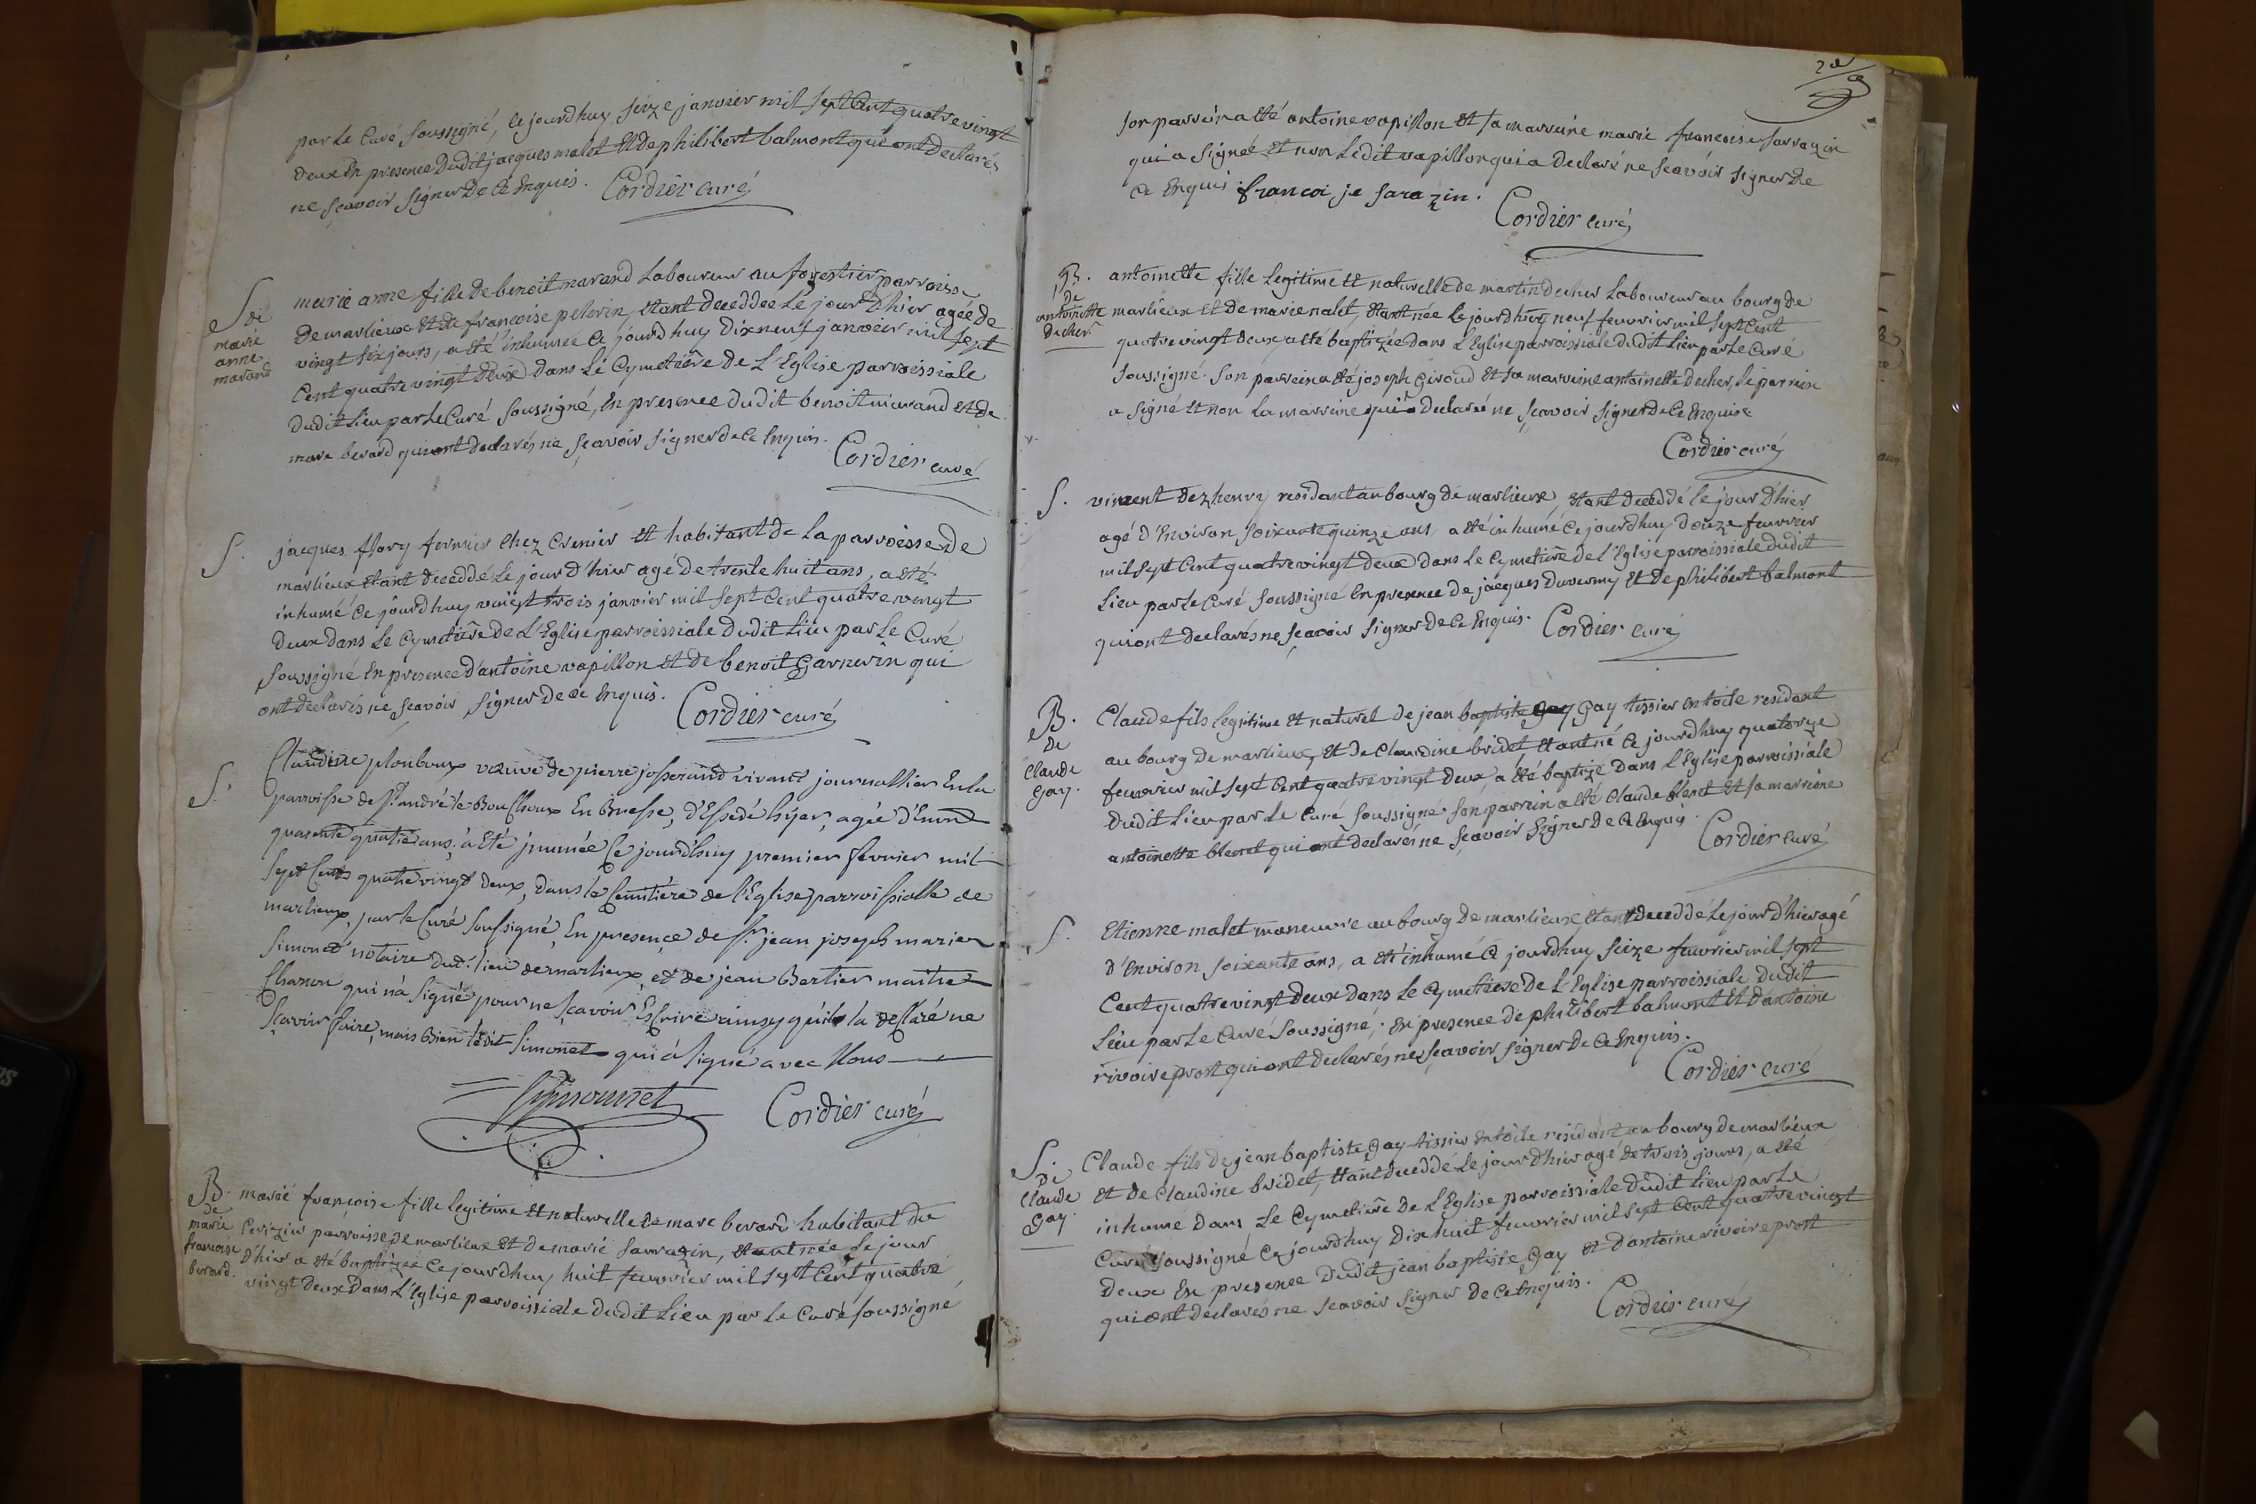 par Le Curé soussigné, ce jourdhuy seize janvier mil sept Cent quatre vingt
deux En presence Dudit jacques malet Et de philibert balmont qui ont declarés
ne sçavoir signer De Ce Enquis. Cordier curé
S de
marie
anne
marand
marie anne fille de benoit marand Laboureur au forestier parroisse
De marlieux Et de francoise pelerin, Etant decedée Le jour D'hier agée de
vingt six jours, a été inhumée Ce jourd'huy Dixneuf janvier mil sept
Cent quatre vingt Deux dans Le Cymetiere De L'Eglise parroissiale
Dudit Lieu par Le Curé soussigné, En presence dudit benoit marand Et de
marc berard qui ont declarés ne sçavoir signer de Ce Enquis.
Cordier curé
S.
jacques flory fermier chez Crenier Et habitant De La parroisse De
marlieux Etant Deceddé Le jour D'hier agé de trente huit ans, a été
inhumé Ce jourdhuy vingt trois janvier mil sept Cent quatre vingt
Deux dans Le Cymetiere De L'Eglise parroissiale Dudit Lieu par Le Curé
soussigné En presence d'antoine vapillon Et de benoit garnerin qui
ont declarés ne sçavoir signer de Ce Enquis. Cordier curé
S.
Claudine plonboux veuve de pierre josserand vivant journallier En la
parroisse de St andré le Bouchoux En Bresse, d'Esédé hyer, agée d'Environ
quarente quatre ans; a Eté jnumée Ce jourd'huy premier fevrier mil
sept Cents quatre vingt deux, dans le Cemitiere de l'Eglise parroissialle de
marlieux, par le Curé soussigné, En presence de Sr jean joseph marie
simonet notaire dud. lieu de marlieux, et de jean Bertier maitre
Charon qui n'a signé pour ne sçavoir Escrire ainsy qu'il la declaré ne
sçavoir faire, mais Bien ledit simonet qui a signé avec Nous
Simonnet Cordier curé
B.
de
marie
francoise
berard.
marie françoise fille legitime Et naturelle de marc berard habitant du
Cerizier parroisse De marlieux Et de marie sarrazin, Etant née Le jour
D'hier a été baptizée Ce jourdhuy huit feuvrier mil sept Cent quatre
vingt deux Dans L'Eglise parroissiale Dudit Lieu par Le Curé soussigné
son parrein a été antoine vapillon Et sa marreine marie francoise sarrazin
qui a signée Et non Ledit vapillon qui a declaré ne sçavoir signer De
Ce Enquis. francoi se sarazin.
Cordier curé
B.
de
antoinette
decher
antoinette fille legitime Et naturelle de martin decher Laboureur au bourg de
marlieux Et de marie nalet, Etant née Le jourdhuy neuf feuvrier mil sept Cent
quatre vingt deux, a été baptizée dans L'Eglise parroissiale dudit Lieu par Le Curé
soussigné. Son parrein a été joseph giroud Et sa marreine antoinette decher, Le parrein
a signé Et non La marreine qui a declaré ne sçavoir signer de Ce Enquise
Cordier curé
S.
vincent dezhenry residant au bourg de marlieux Etant deceddé le jour D'hier
agé d'Environ soixante quinze ans a été inhumé Ce jourdhuy douze feuvrier
mil sept Cent quatre vingt deux dans Le Cymetiere de L'Eglise parroissiale dudit
Lieu par Le Curé soussigné En presence de jacques duverny Et de philibert balmont
qui ont declarés ne sçavoir signer de Ce Enquis. Cordier curé
B.
de
Claude
gay.
Claude fils legitime Et naturel de jean baptiste gay tissier En toile residant
au bourg de marlieux Et de Claudine bridet Etant né Ce jourdhuy quatorze
feuvrier mil sept Cent quatre vingt Deux, a été baptizé Dans L'Eglise parroissiale
Dudit Lieu par Le Curé soussigné. son parrein a été Claude blenet Et sa marreine
antoinette blenet qui ont declarés ne sçavoir signer de Ce Enquis. Cordier curé
S.
Etienne malet maneuvre au bourg de marlieux, Etant deceddé Le jour d'hier agé
d'Environ soixante ans, a été inhumé Ce jourdhuy seize feuvrier mil sept
Cent quatre vingt Deux dans Le Cymetiere de L'Eglise parroissiale dudit
Lieu par Le Curé soussigné, En presence de philibert balmont Et d'antoine
rivoire prost qui ont declarés ne sçavoir signer de Ce Enquis.
Cordier curé
S.
De
Claude
gay
Claude fils de jean baptiste gay tissier En toile residant au bourg de marlieux
Et de Claudine bridet, Etant deceddé Le jour D'hier agé de trois jours, a été
inhumé dans Le Cymetiere de L'Eglise parroissiale dudit Lieu par Le
Curé soussigné Ce jourdhuy Dix huit feuvrier mil sept Cent quatre vingt
Deux En presence Dudit jean baptiste gay Et d'antoine rivoire prost
qui ont declarés ne sçavoir signer de Ce Enquis.
Cordier curé